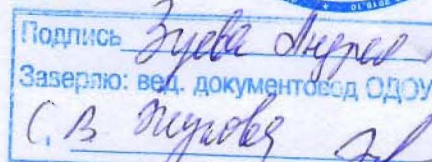 Подпись Зуева Андрея
Заверяю: вед. документовед ОДОУ
С. В. Жукова